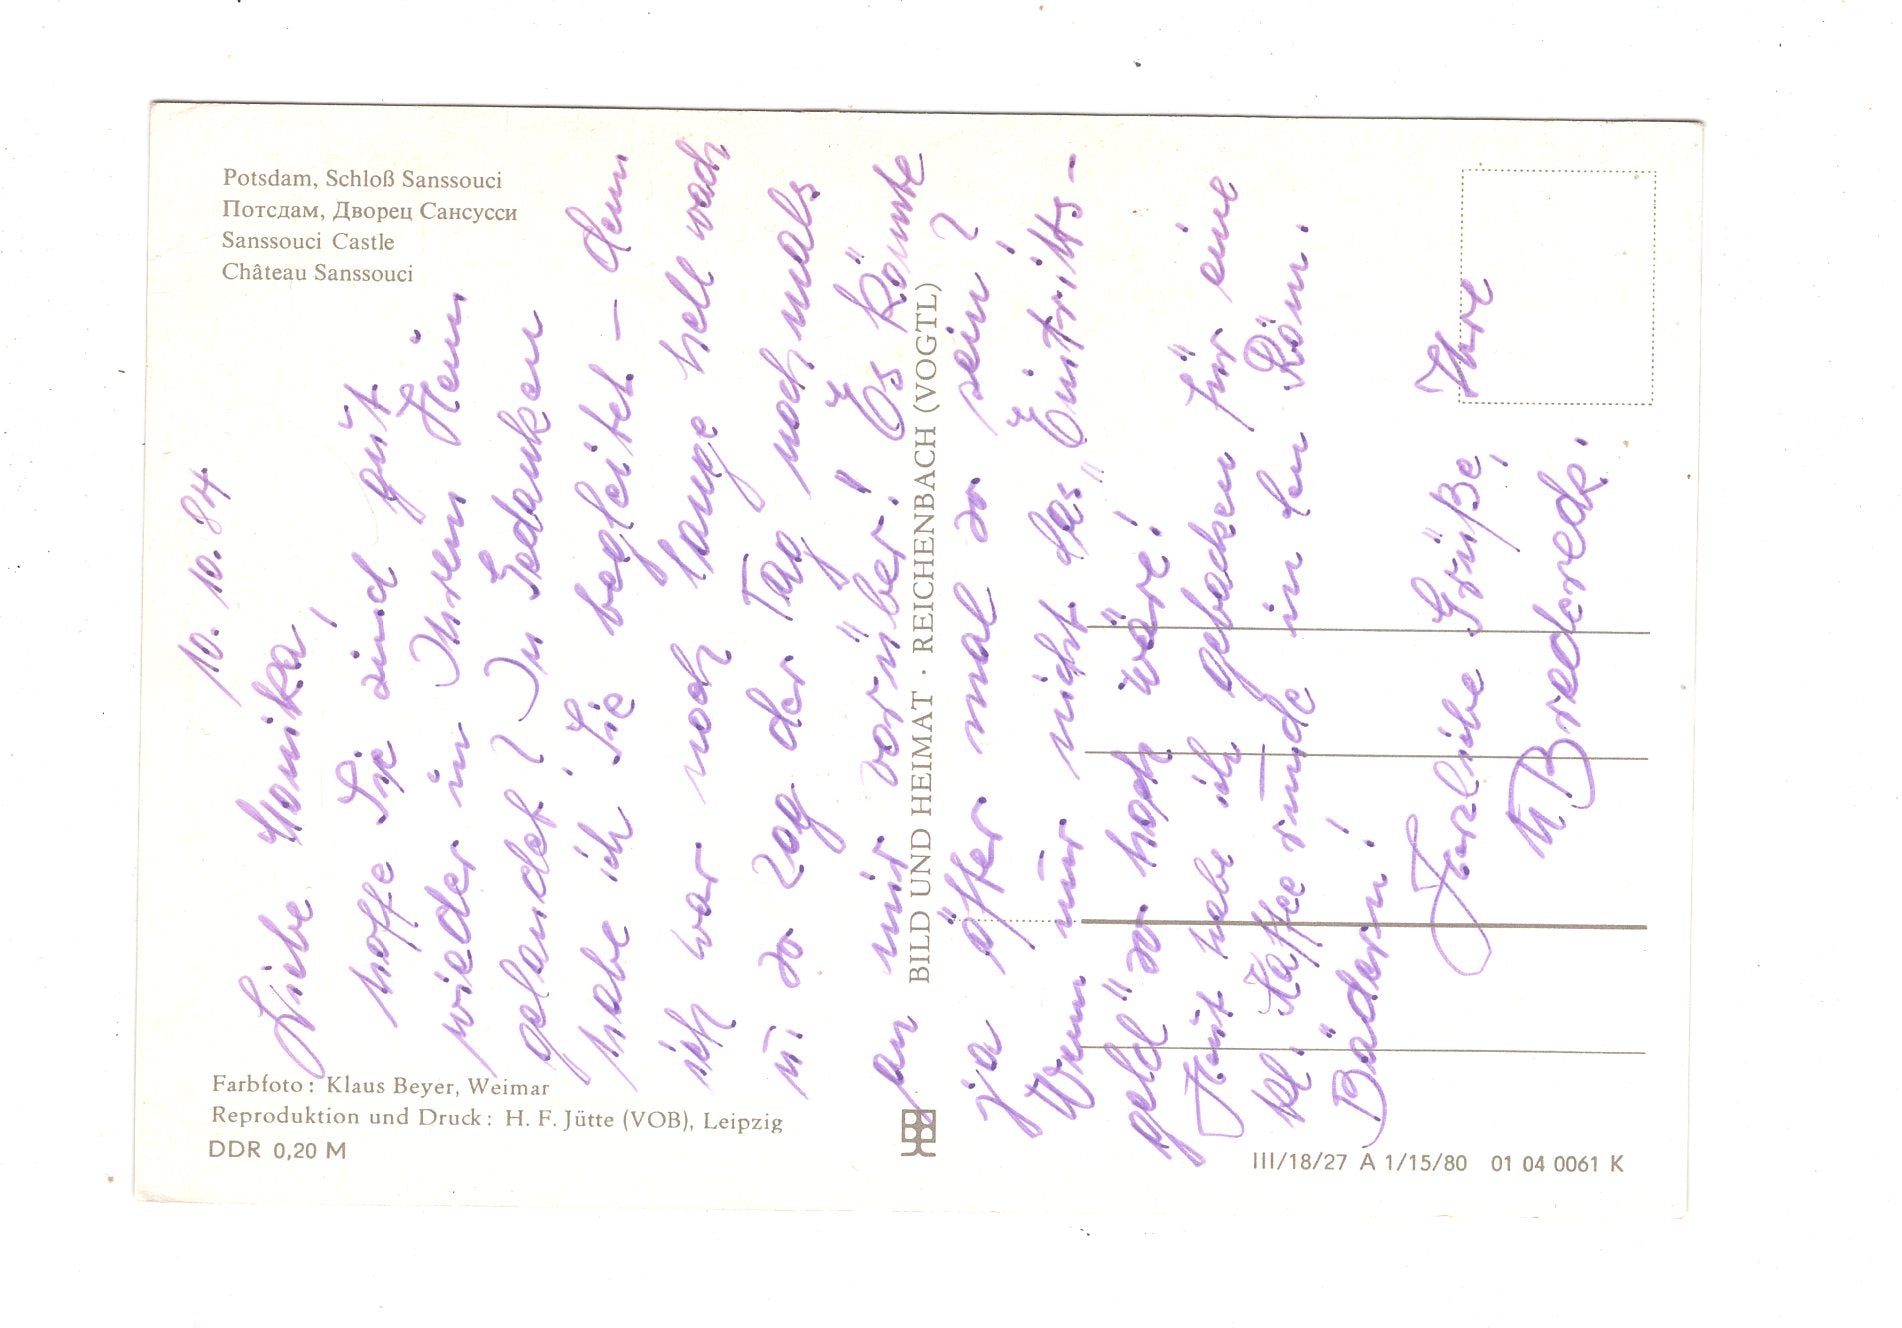 Potsdam, Schloß Sanssouci
Потсдам, Дворец Сансусси
Sanssouci Castle
Château Sanssouci
10. 10. 84
Liebe Monika,
hoffe Sie sind gut
wieder in Ihrem Heim
gelandet? In Gedanken
habe ich Sie begleitet – denn
ich war noch lange hell wach
u. so zog der Tag nochmals
an mir vorüber! Es könnte
ja öfter mal so sein?
Wenn nur nicht das „Eintritts-
geld" so hoch wäre!
Heut habe ich gebacken für eine
kl. Kaffeerunde in den Räum.
Bäckerin!
Herzliebe Grüße, Ihre
M Brederede.
BILD UND HEIMAT · REICHENBACH (VOGTL)
Farbfoto: Klaus Beyer, Weimar
Reproduktion und Druck: H. F. Jütte (VOB), Leipzig
DDR 0,20 M
III/18/27 A 1/15/80 01 04 0061 K